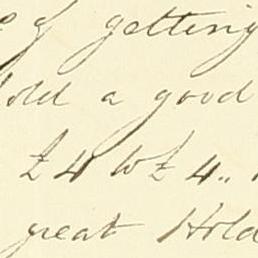 of getting
old a good
£4 to £4..
great Hold